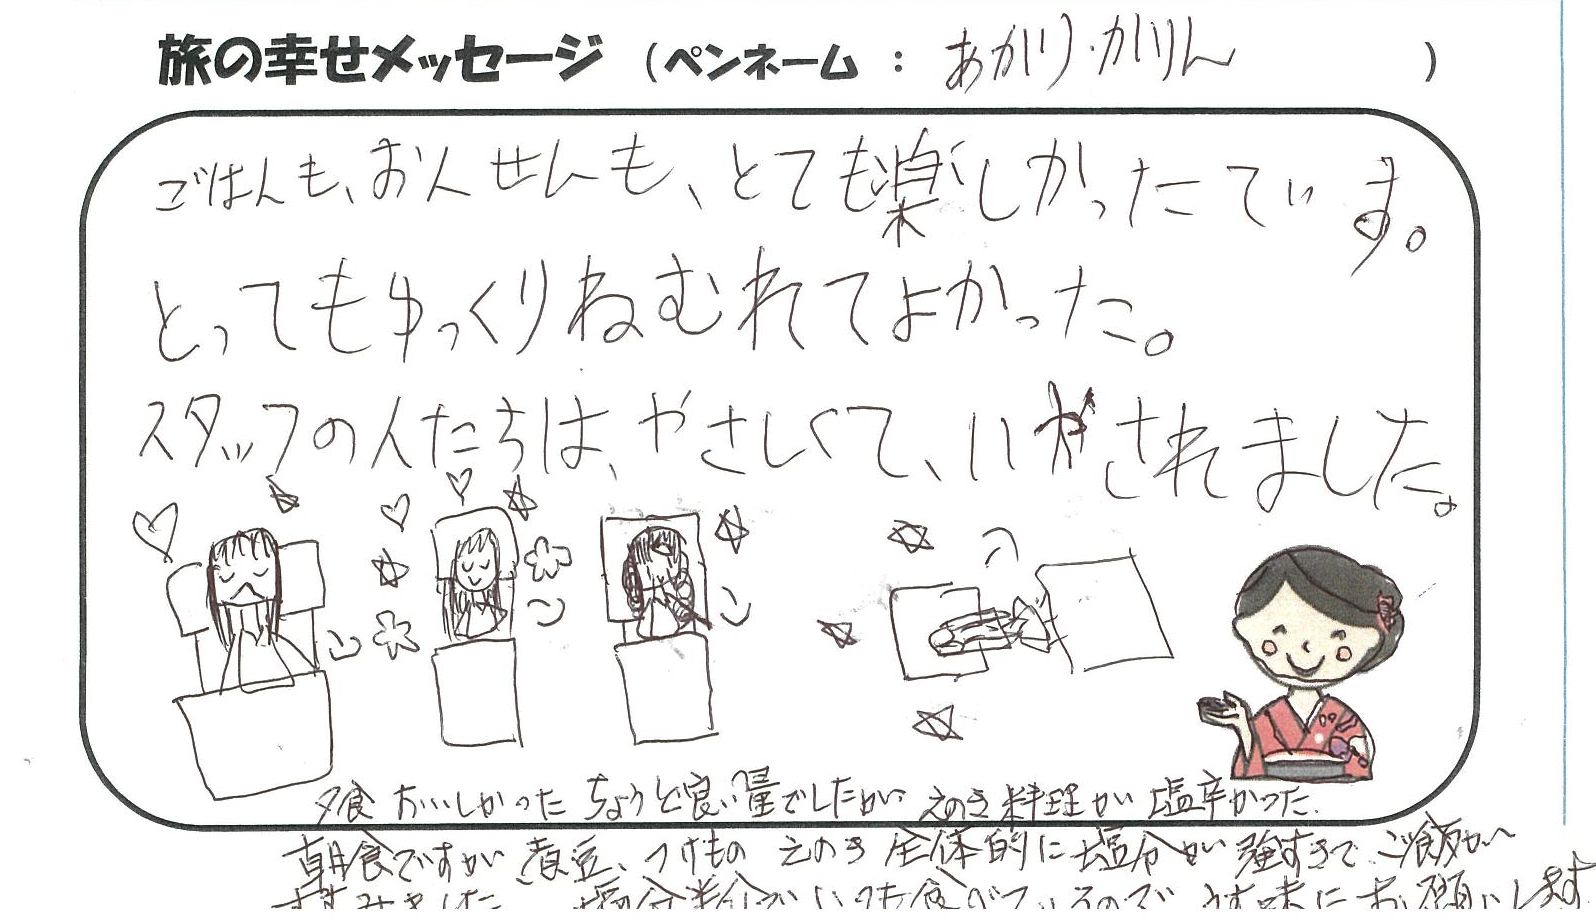 旅の幸せメッセージ （ペンネーム ： あかり・かりん ）
ごはんも、おんせんも、とても楽しかったでいす。
とってもゆっくりねむれてよかった。
スタッフの人たちは、やさしくて、いやされました。
夕食 おいしかった ちょうど良い量でしたが えのき料理が 塩辛かった。
朝食ですが 煮豆、つけもの えのき 全体的に塩分が強すぎて ご飯が
すすみました